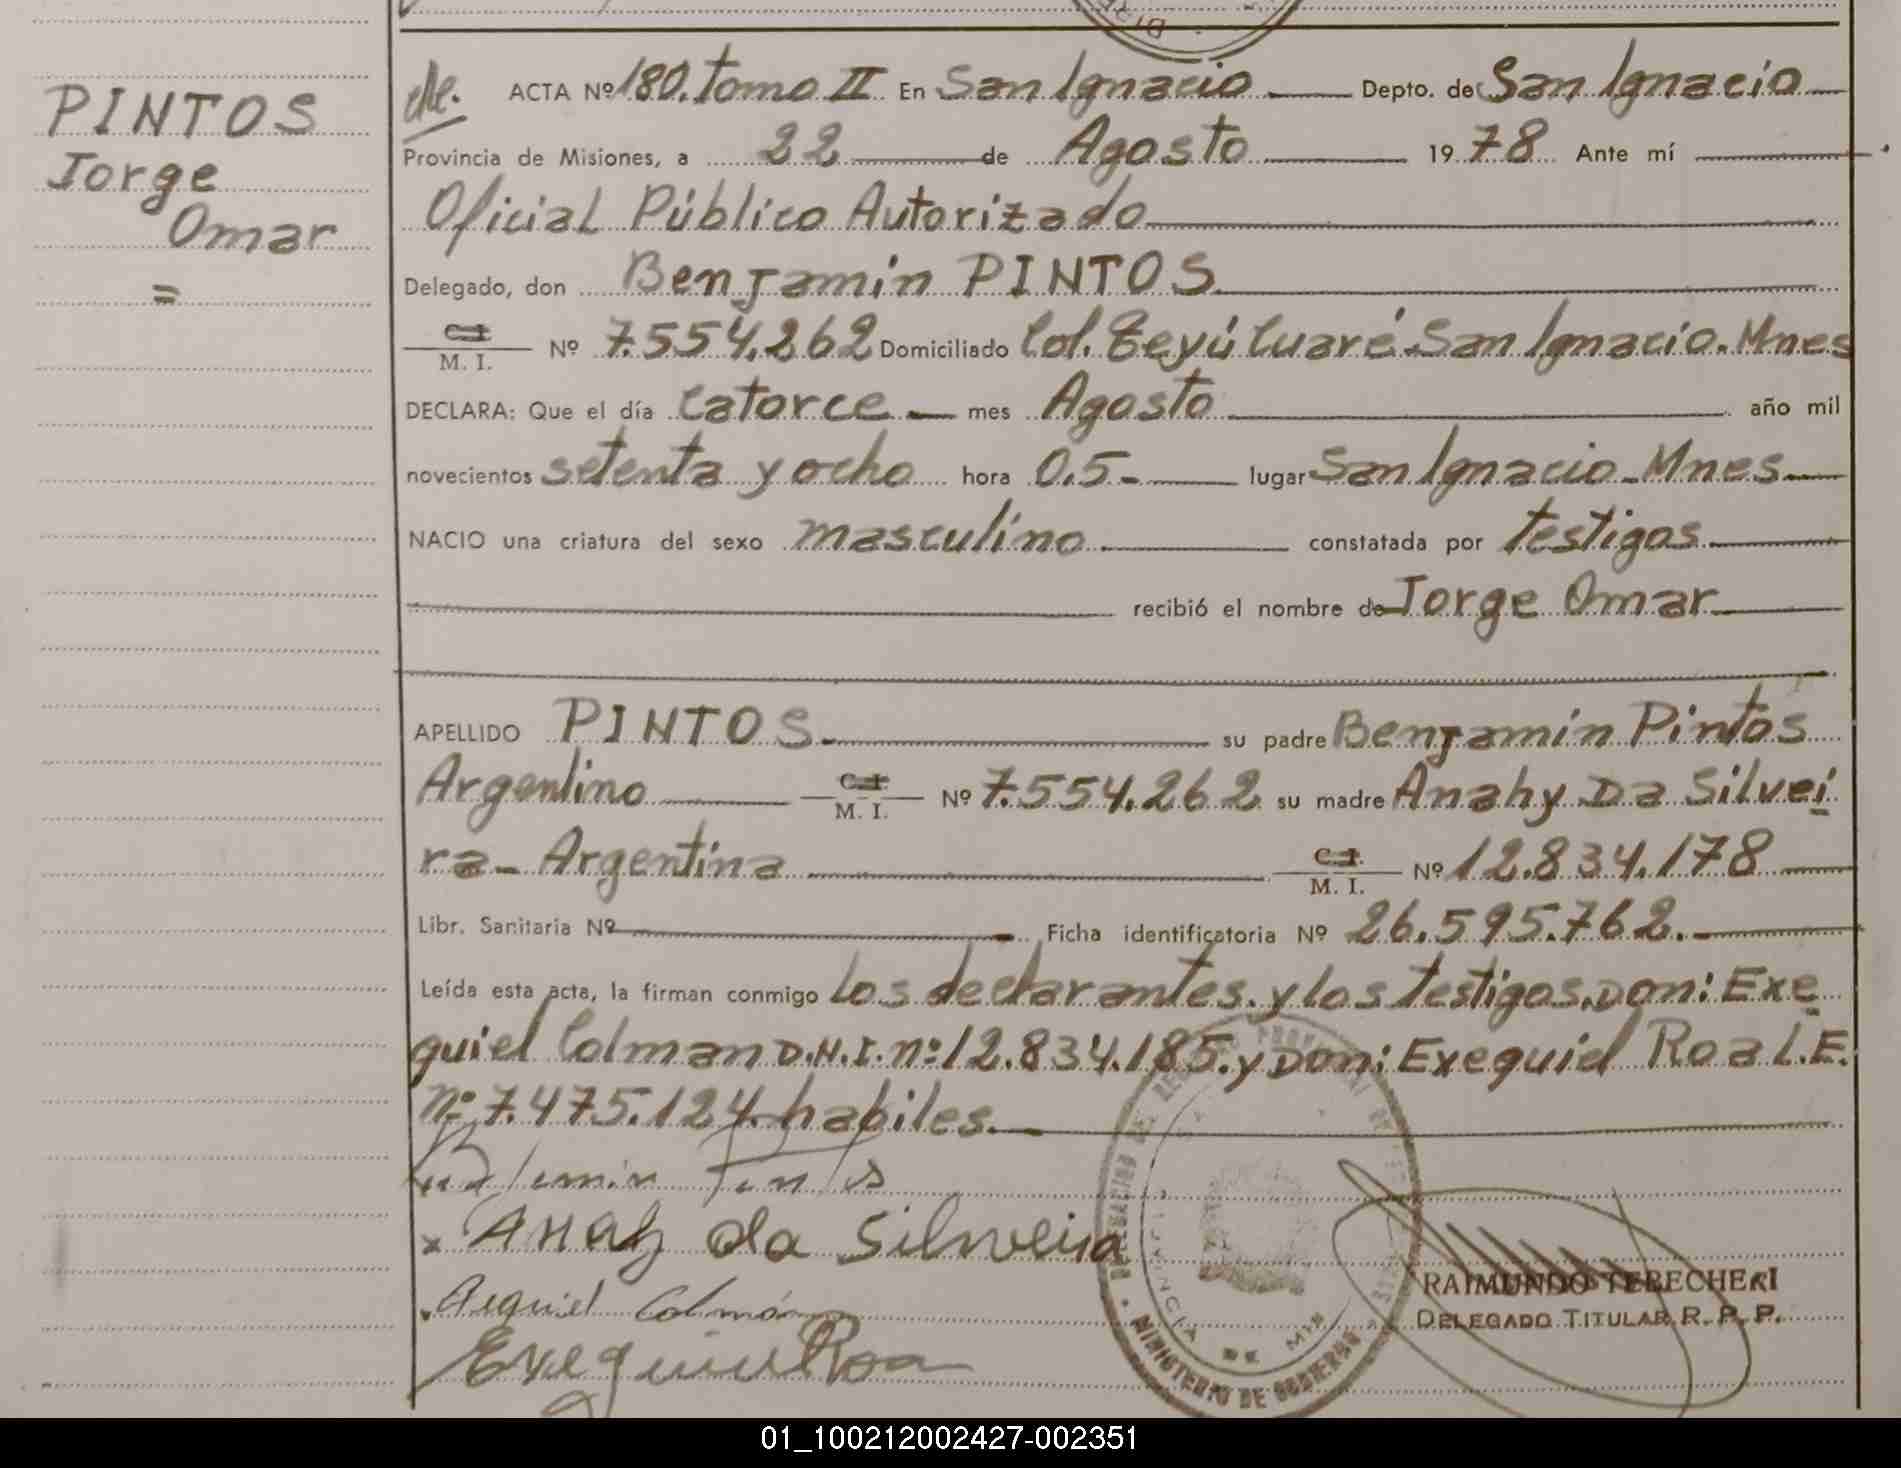 PINTOS
Jorge
Omar
=
ACTA Nº 180. Tomo II En San Ignacio Depto. de San Ignacio
Provincia de Misiones, a 22 de Agosto 1978 Ante mí
Oficial Público Autorizado
Delegado, don Benjamin PINTOS
C. I.
M. I. Nº 7.554.262 Domiciliado Col. Teyú Cuaré San Ignacio. Mnes
DECLARA: Que el día catorce mes Agosto año mil
novecientos setenta y ocho hora 0.5 lugar San Ignacio - Mnes
NACIO una criatura del sexo masculino constatada por testigos
recibió el nombre de Jorge Omar
APELLIDO PINTOS su padre Benjamín Pintos
Argentino C. I. M. I. Nº 7.554.262 su madre Anahy Da Silvei
ra - Argentina C. I. M. I. Nº 12.834.178
Libr. Sanitaria Nº Ficha identificatoria Nº 26.595.762.
Leída esta acta, la firman conmigo los declarantes. y los testigos. Don: Exe
quiel Colman D.N.I. nº: 12.834.185. y Don: Exequiel Roa L.E.
nº: 7.475.124. habiles.
Pintos
x Anahy da Silveira
Colmán
Exequiel Roa
RAIMUNDO TERECHEKI
DELEGADO TITULAR R. P. P.
MINISTERIO DE GOBIERNO
PROVINCIA DE MIS
01_100212002427-002351